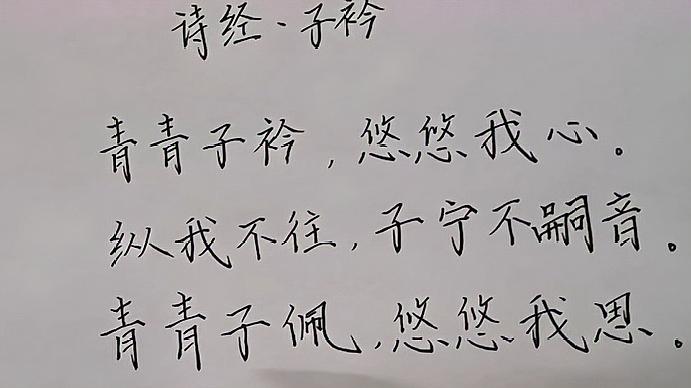 诗经·子衿
青青子衿,悠悠我心。
纵我不往,子宁不嗣音。
青青子佩,悠悠我思。